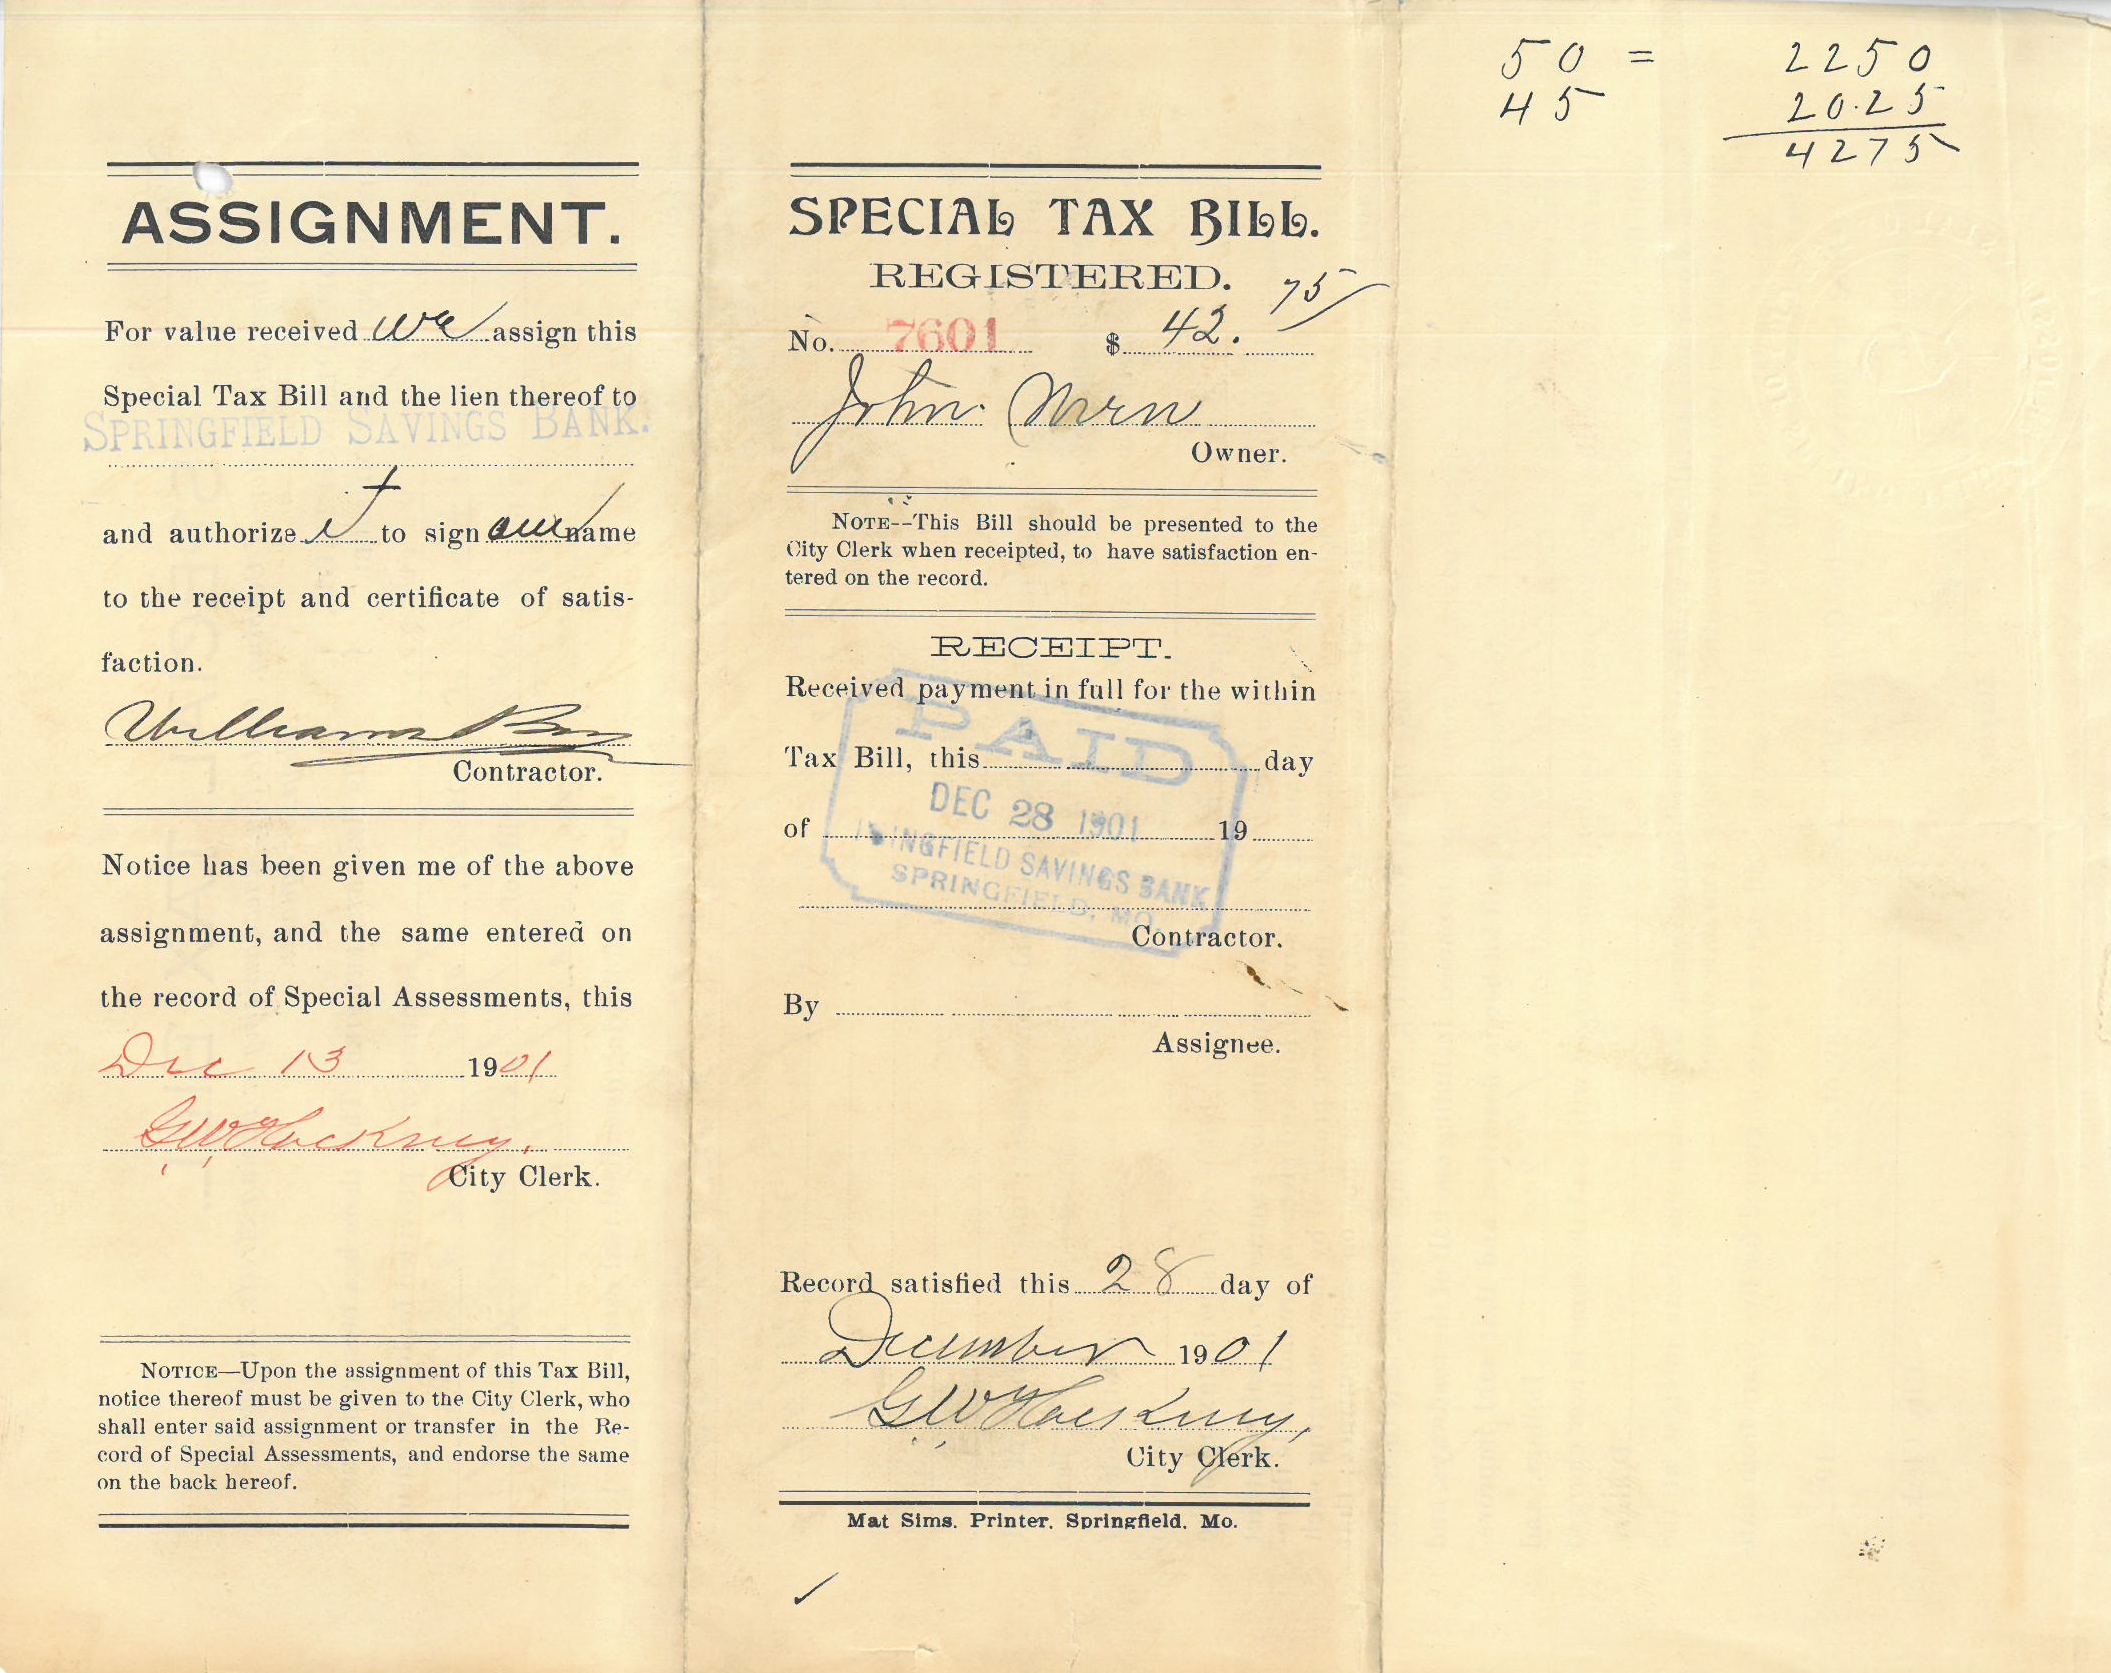 ASSIGNMENT.
For value received we assign this
Special Tax Bill and the lien thereof to
SPRINGFIELD SAVINGS BANK.
and authorize it to sign our name
to the receipt and certificate of satis-
faction.
Williams Bros
Contractor.
Notice has been given me of the above
assignment, and the same entered on
the record of Special Assessments, this
Dec 13 1901
G W Hackney.
City Clerk.
NOTICE—Upon the assignment of this Tax Bill,
notice thereof must be given to the City Clerk, who
shall enter said assignment or transfer in the Re-
cord of Special Assessments, and endorse the same
on the back hereof.
SPECIAL TAX BILL.
REGISTERED.
No. 7601 $ 42. 75
John
Owner.
NOTE--This Bill should be presented to the
City Clerk when receipted, to have satisfaction en-
tered on the record.
RECEIPT.
Received payment in full for the within
Tax Bill, this day
of 19
PAID
DEC 28 1901
INGFIELD SAVINGS BANK
SPRINGFIELD, MO.
Contractor.
By
Assignee.
Record satisfied this 28 day of
December 1901
G W Hackney,
City Clerk.
Mat Sims, Printer, Springfield, Mo.
50 = 2250
45 20.25
4275